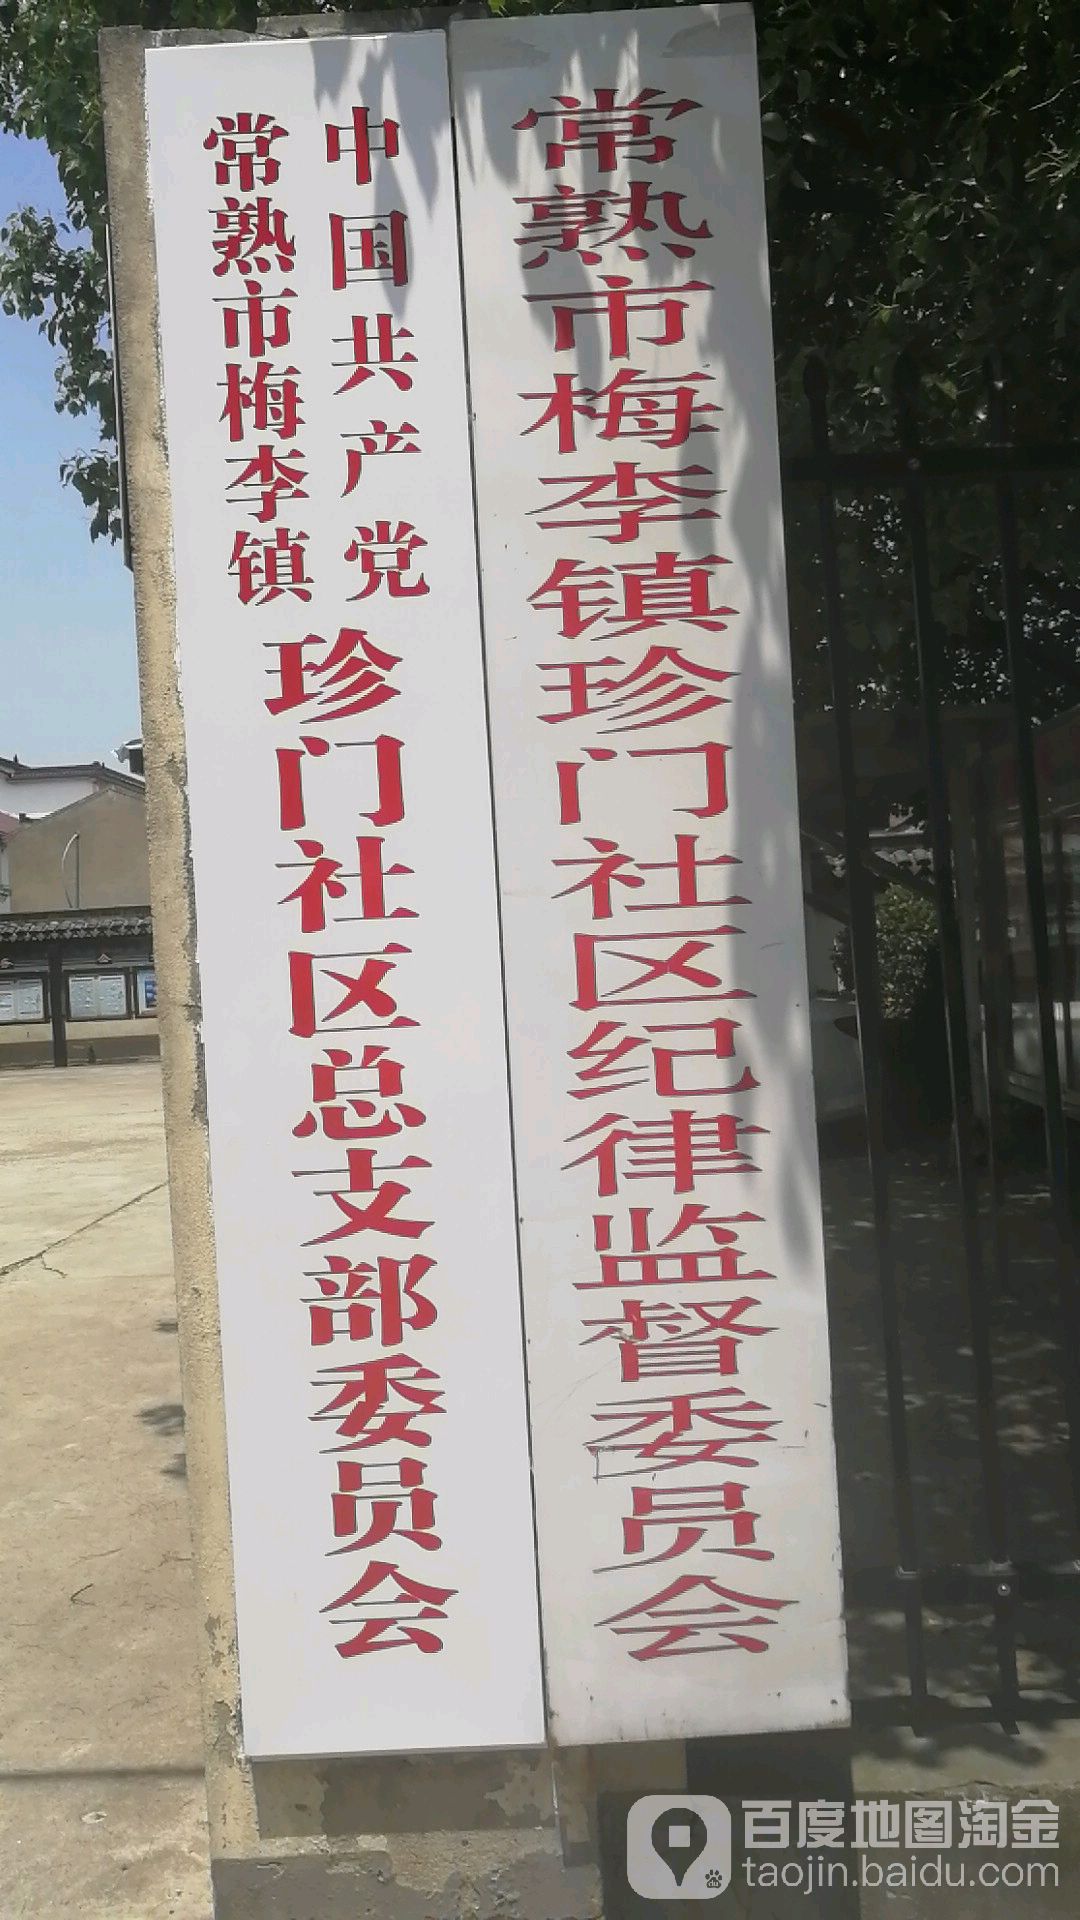 中国共产党
常熟市梅李镇
珍门社区总支部委员会
常熟市梅李镇珍门社区纪律监督委员会
百度地图淘金
taojin.baidu.com